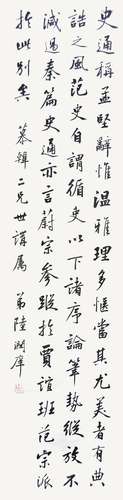 史通稱孟堅辭惟溫雅理多愜當其尤美者有典
誥之風范史自謂循吏以下諸序論筆勢縱放不
減過秦篇史通亦言蔚宗參蹤於賈誼班范宗派
於此別矣 慕二兄世講屬 弟陸潤庠